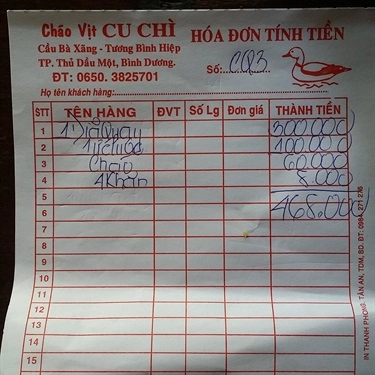 Cháo Vịt CU CHÌ
Cầu Bà Xăng - Tương Bình Hiệp
TP. Thủ Dầu Một, Bình Dương.
ĐT: 0650. 3825701
HÓA ĐƠN TÍNH TIỀN
Số:
Họ tên khách hàng:
STT TÊN HÀNG ĐVT Số Lg Đơn giá THÀNH TIỀN
1 300.000
2 100.000
3 Cháo 60.000
4 4 Khăn 8.000
5
6 468.000
7
8
9
10
11
12
13
14
15
IN THANH PHONG. TÂN AN, TDM, BD. ĐT: 0984 271 276